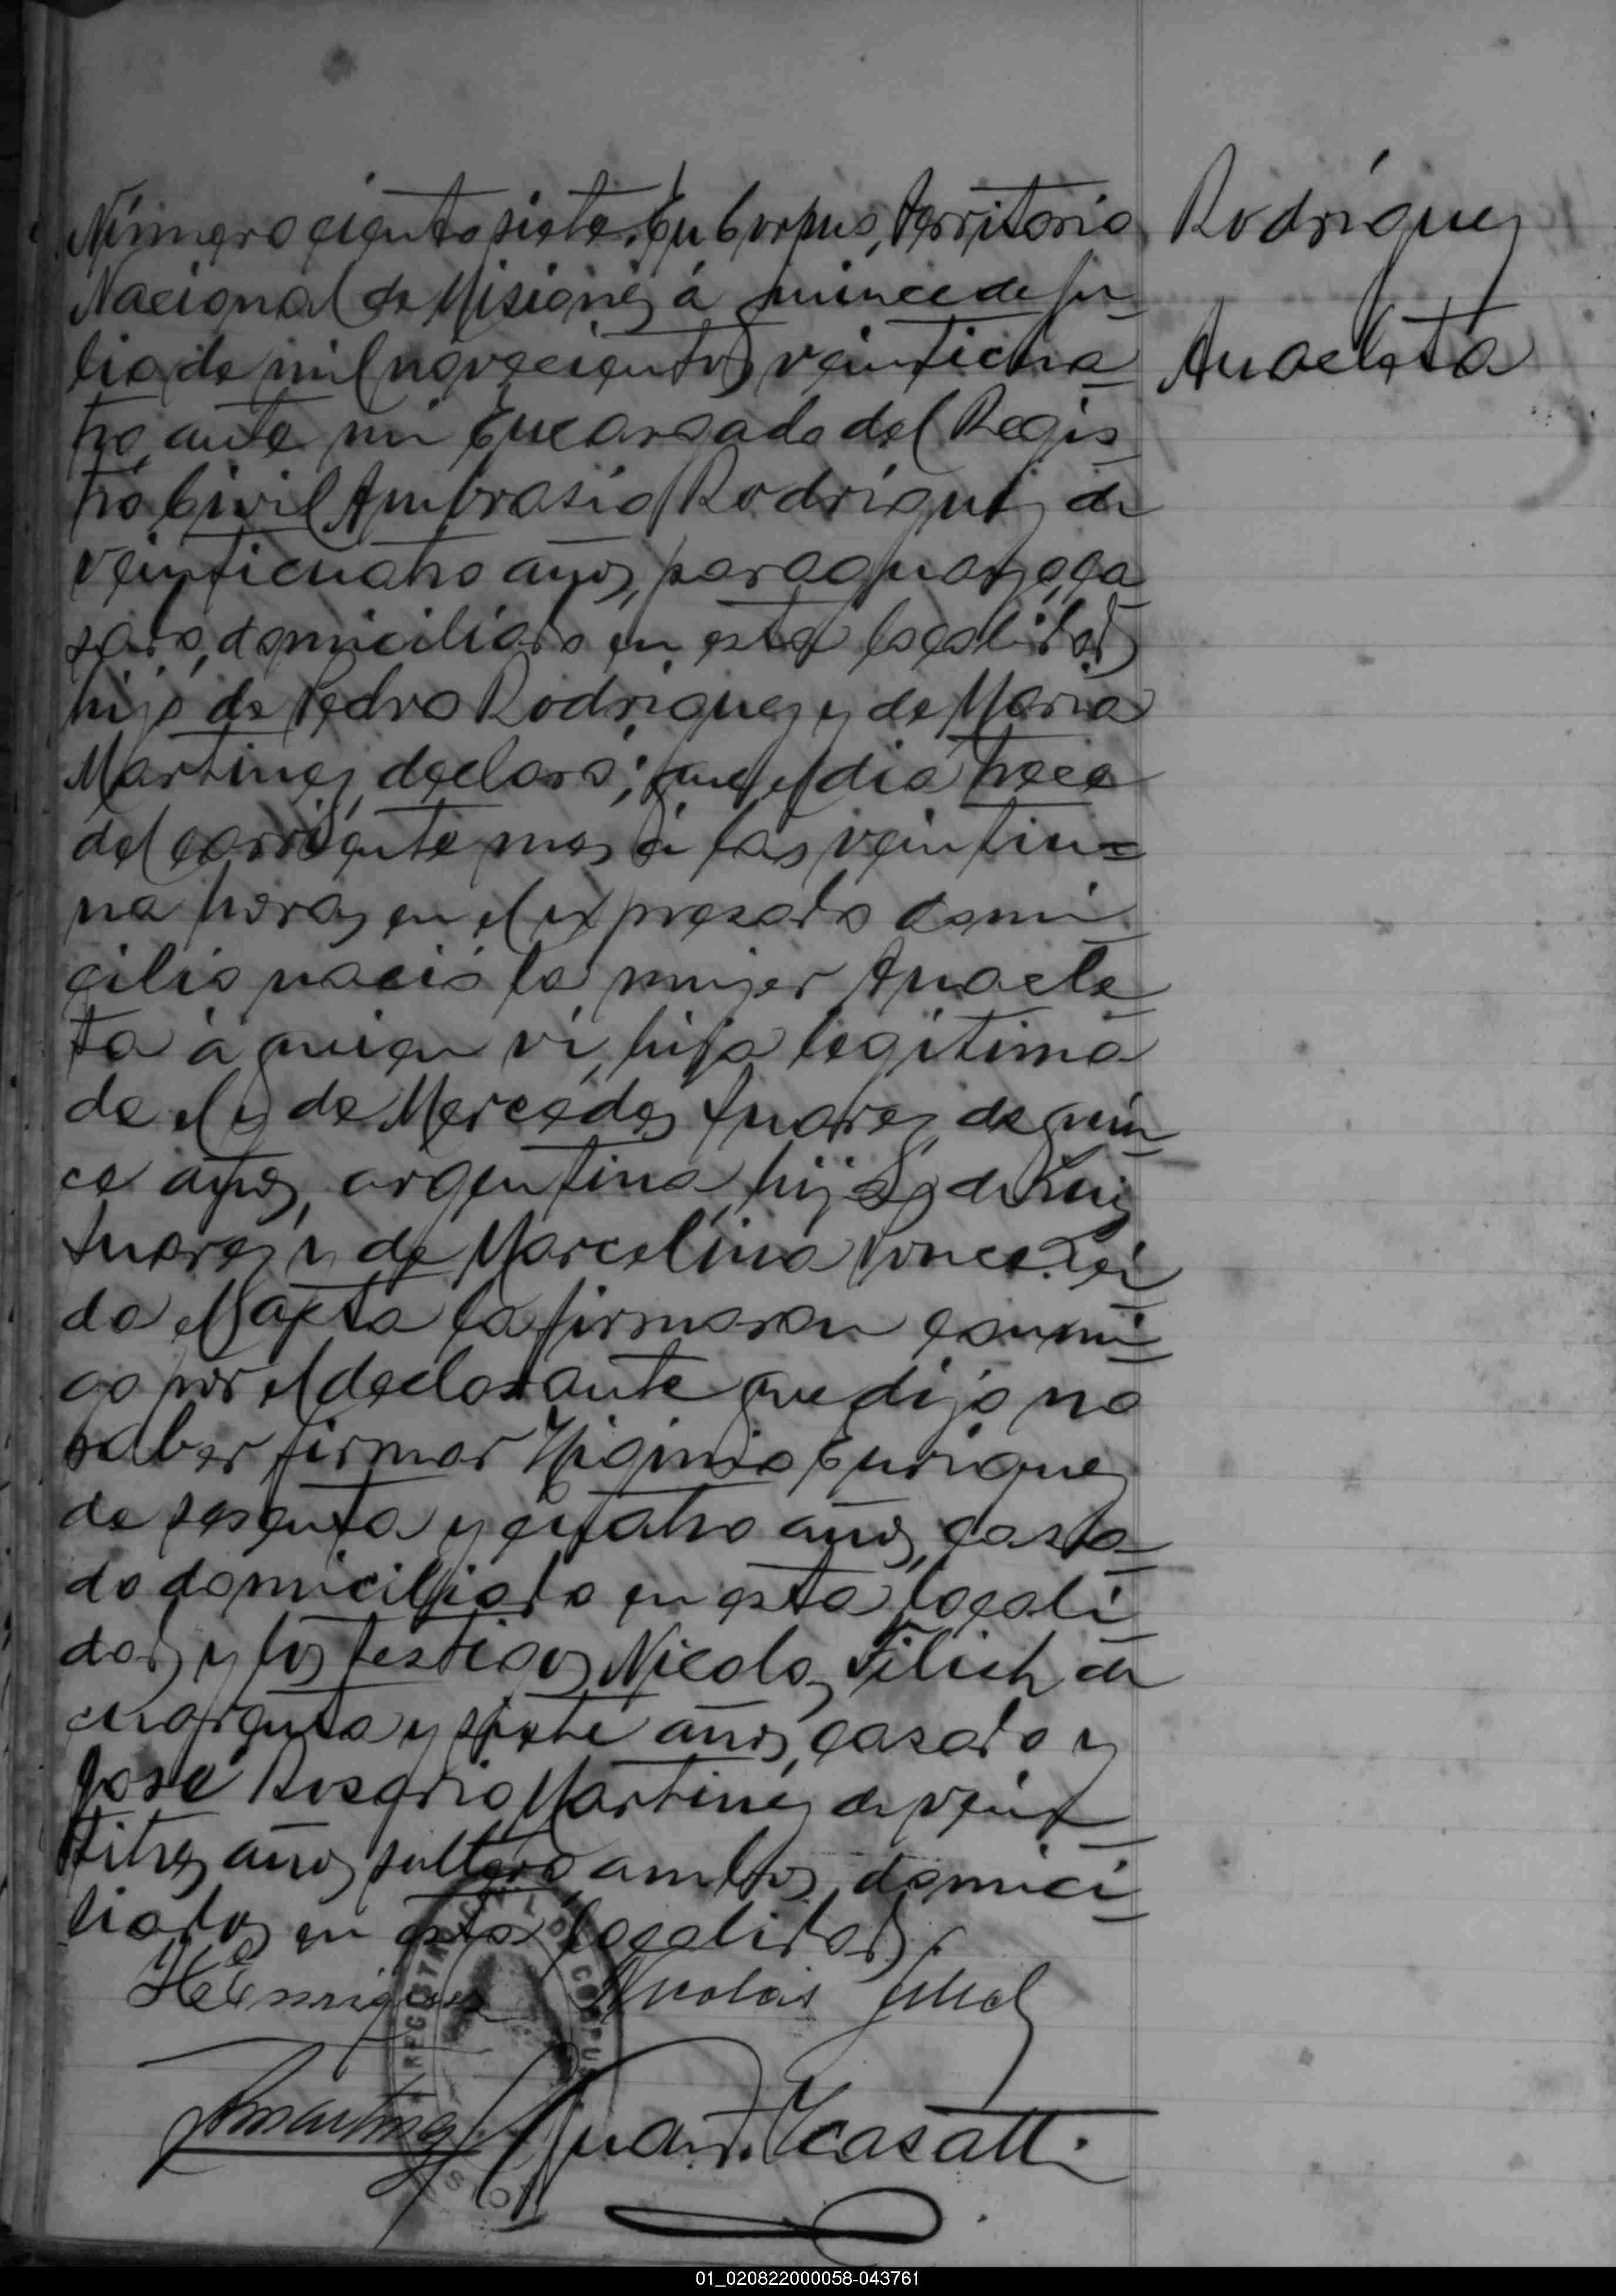 Rodríguez
Anacleta
Número ciento siete. En Corpus, Territorio
Nacional de Misiones á quince de ju-
lio de mil novecientos veinticua-
tro, ante mi Encargado del Regis-
tro Civil Ambrosio Rodriguez de
veinticuatro años, paraguayo, ca-
sado, domiciliado en esta localidad
hijo de Pedro Rodriguez y de Maria
Martinez, declaró; que el dia trece
del corriente mes á las veintiu=
na horas en el expresado domi
cilio nació la mujer Anacle-
ta á quien vi, hija legítima
de el y de Mercedes de quin-
ce años, argentina, hija de Luis
y de Marcelina Ponce. Lei-
da el acta la firmaron conmi-
go por el declarante que dijo no
saber firmar Higinio Enriquez
de sesenta y cuatro años, casa-
do domiciliado en esta locali-
dad y los testigos Nicolas de
cuarenta y siete años, casado y
José Rosario Martinez de vein-
titres años, soltero ambos domici-
liados en esta localidad.
HEnriquez Nicolas
Juan Casatti
REGISTRO CIVIL CORPUS
01_020822000058-043761